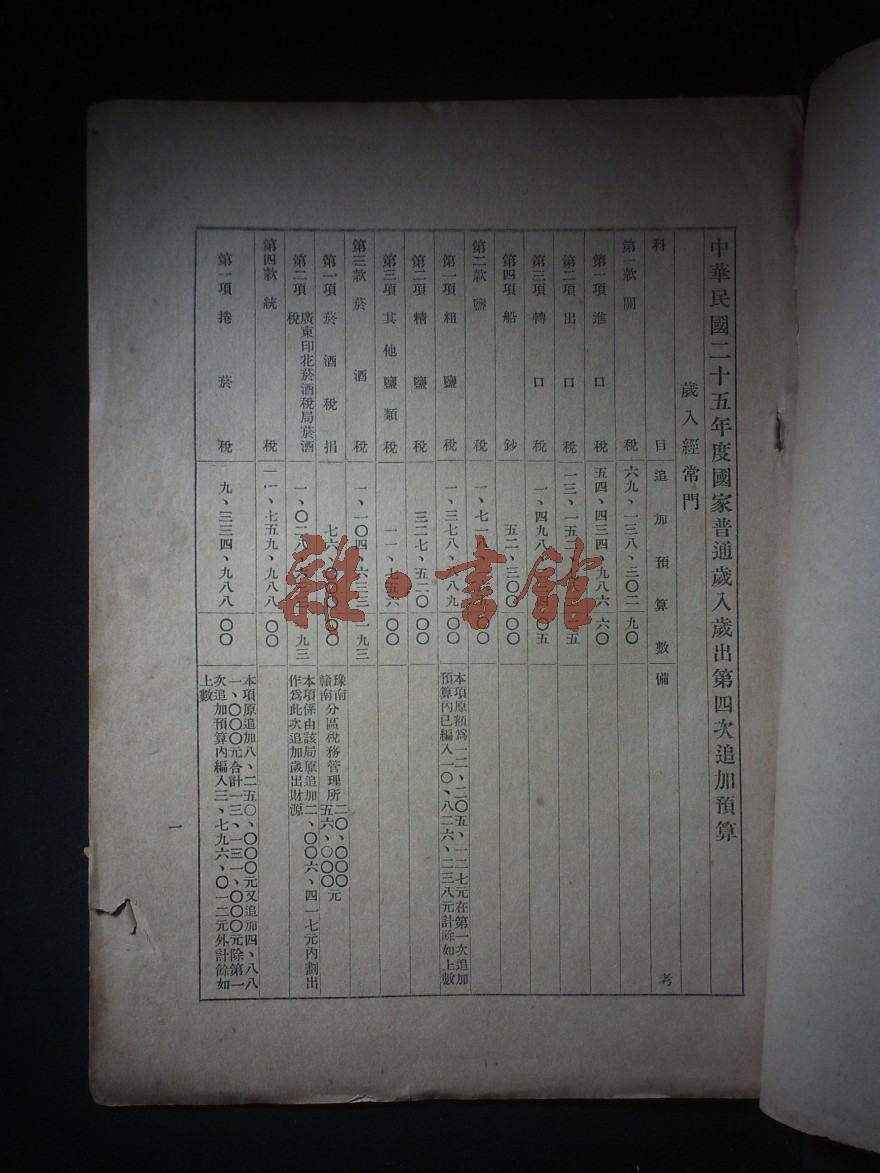 中華民國二十五年度國家普通歲入歲出第四次追加預算
歲入經常門
科目 追加預算數 備考
第一款關稅 六九、一三八、三〇二 九〇
第一項進口稅 五四、四三四、九八六 六〇
第二項出口稅 一三、一五二、
第三項轉口稅 一、四九八、 〇五
第四項船鈔 五二、三〇〇 〇〇
第二款鹽稅 一、七一八、 〇〇
第一項粗鹽稅 一、三七八、八八九 〇〇 本項原額為一二、二〇五、一二七元在第一次追加
預算內已編入一〇、八二六、二三八元計餘如上數
第二項精鹽稅 三二七、五二〇 〇〇
第三項其他鹽類稅 一一、七五六 〇〇
第三款菸酒稅 一、一〇四、六三三 九三
第一項菸酒稅捐 七六、〇〇〇 〇〇 豫南分區稅務管理所二〇、〇〇〇元
贛南分區稅務管理所五六、〇〇〇元
第二項廣東印花菸酒稅局菸酒稅 一、〇二八、六三三 九三 本項係由該局原追加二、〇〇六、四一七元內劃出
作為此次追加歲出財源
第四款統稅 一一、七五九、九八八 〇〇
第一項捲菸稅 九、三三四、九八八 〇〇 本項原追加八、二五〇、〇〇〇元又追加四、八八
一、〇〇〇元合計一三、一三一、〇〇〇元除第一
次追加預算內編入三、七九六、〇一二元外計餘如
上數
一
雜·書館